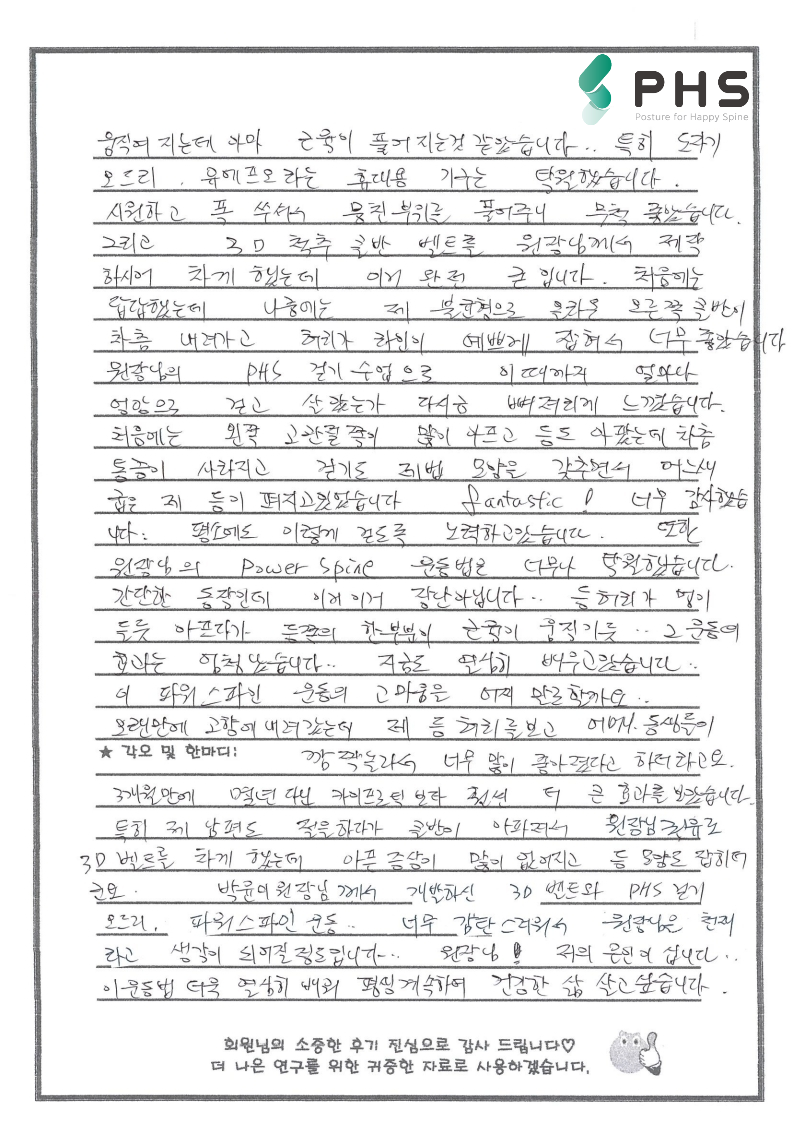 PHS
Posture for Happy Spine
움직여 지는데 아마 근육이 풀어 지는것 같았습니다.. 특히 도자기
오드리, 유에프오 라는 휴대용 기구는 탁월했습니다.
시원하고 폭 쑤셔서 뭉친 부위를 풀어주니 무척 좋았습니다.
그리고 3D 척추 골반 벨트를 원장님께서 제작
하시어 차게 했는데 이거 완전 굿 입니다. 처음에는
답답했는데 나중에는 제 불균형으로 올라온 오른쪽 골반이
차츰 내려가고 허리가 라인이 예쁘게 잡혀서 너무 좋았습니다
원장님의 PHS 걷기 수업으로 이때까지 얼마나
엉망으로 걷고 살았는가 다시금 뼈저리게 느꼈습니다.
처음에는 왼쪽 고관절쪽이 많이 아프고 등도 아팠는데 차츰
통증이 사라지고 걷기도 제법 모양을 갖추면서 어느새
굽은 제 등이 펴지고있었습니다 fantastic! 너무 감사했습
니다: 평소에도 이렇게 걷도록 노력하고있습니다. 또한
원장님의 Power Spine 운동법은 너무나 탁월했습니다.
간단한 동작인데 이거이거 장난아닙니다.. 등허리가 멍이
두릇 아프다가 등쪽의 한부분이 근육이 움직기듯.. 그 운동의
효과는 엄청났습니다.. 지금도 열심히 배우고있습니다..
이 파워스파인 운동의 고마움을 어찌 말로할까요..
오랜만에 고향에 내려갔는데 제 등허리를보고 어머니. 동생들이
★ 각오 및 한마디: 깜짝놀라서 너무 많이 좋아졌다고 하더라고요.
3개월만에 몇년 다닌 카이프로틱 보다 훨씬 더 큰 효과를 보았습니다.
특히 제 남편도 골프하다가 골반이 아파져서 원장님 권유로
3D 벨트를 차게 했는데 아픈증상이 많이 없어지고 등 모양도 잡히더
군요. 박윤미원장님께서 개발하신 3D 벨트와 PHS 걷기
오드리, 파워스파인 운동.. 너무 감탄스러워서 원장님은 천재
라고 생각이 되어질정도입니다... 원장님! 저의 은인이십니다..
이운동법 더욱 열심히 배워 평생 계속하여 건강한 삶 살고싶습니다.
회원님의 소중한 후기 진심으로 감사 드립니다♡
더 나은 연구를 위한 귀중한 자료로 사용하겠습니다.